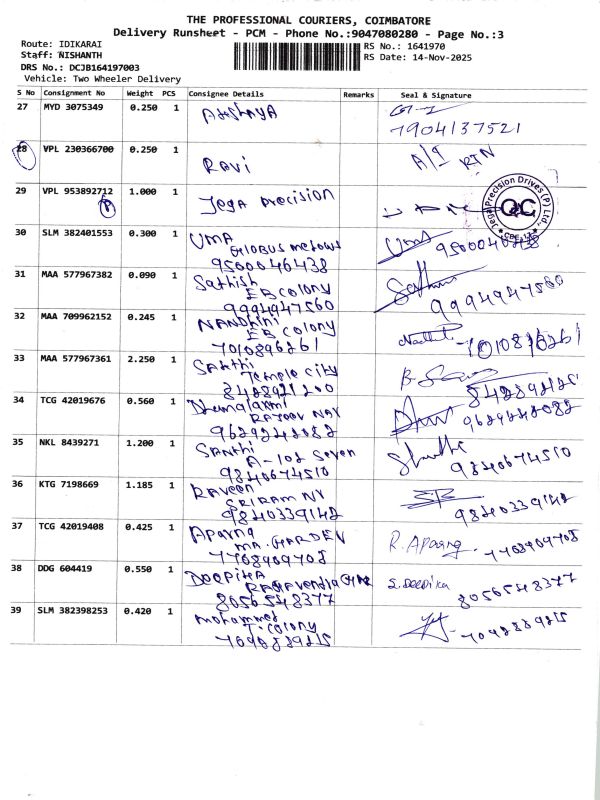 THE PROFESSIONAL COURIERS, COIMBATORE
Delivery Runsheet - PCM - Phone No.:9047080280 - Page No.:3
Route: IDIKARAI
RS No.: 1641970
Staff: NISHANTH
RS Date: 14-Nov-2025
DRS No.: DCJB164197003
Vehicle: Two Wheeler Delivery
S No Consignment No Weight PCS Consignee Details Remarks Seal & Signature
27 MYD 3075349 0.250 1 Akshaya
7904137521
28 VPL 230366700 0.250 1 Ravi A/I RTN
29 VPL 953892712 1.000 1 Jega Precision
Jega Precision Drives (P) Ltd.
QC
30 SLM 382401553 0.300 1 UMA Uma
GLOBUS meadows 9500046438
9500046438
31 MAA 577967382 0.090 1 Sathish
EB Colony 9994947560
9994947560
32 MAA 709962152 0.245 1 NANDHINI
EB Colony
7010896261
33 MAA 577967361 2.250 1 Sakthi
Temple City
34 TCG 42019676 0.560 1
9629242082 9629242082
35 NKL 8439271 1.200 1 Santhi
A-102 Seven 9840674510
9840674510
36 KTG 7198669 1.185 1 Raveen
SRIRAM NY 9840339142
9840339142
37 TCG 42019408 0.425 1 Aparna R. Aparna
7708909708
7708909708
38 DDG 604419 0.550 1 Deepika S. Deepika
8056548377
8056548377
39 SLM 382398253 0.420 1 mohammed
T. colony